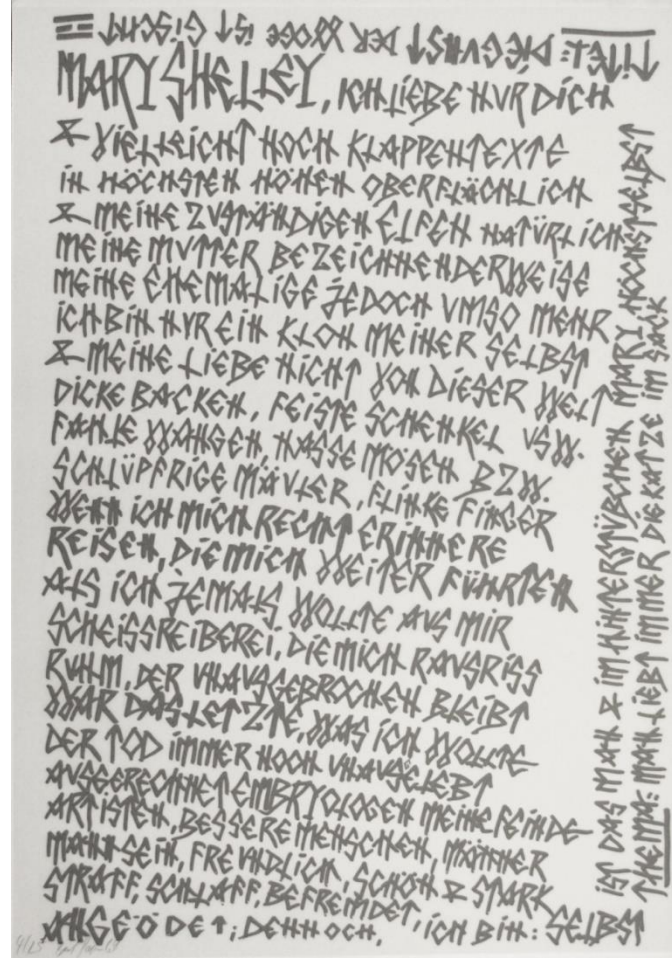 TITEL: DIE GUNST DER WOGE IST GISCHT
MARY SHELLEY, ICH LIEBE NUR DICH
& VIELLEICHT NOCH KLAPPENTEXTE
IN HÖCHSTEN HÖHEN OBERFLÄCHLICH
& MEINE ZUSTÄNDIGEN ELFEN NATÜRLICH
MEINE MUTTER BEZEICHNENDERWEISE
MEINE EHEMALIGE JEDOCH UMSO MEHR
ICH BIN NUR EIN KLON MEINER SELBST
& MEINE LIEBE NICHT VON DIESER WELT
DICKE BACKEN, FEISTE SCHENKEL USW.
FAHLE WANGEN, NASSE MÖSEN BZW.
SCHLÜPFRIGE MÄULER, FLINKE FINGER
WENN ICH MICH RECHT ERINNERE
REISEN, DIE MICH WEITER FÜHRTEN
ALS ICH JEMALS WOLLTE AUS MIR
SCHEISSREIBEREI, DIE MICH RAUSRISS
RUHM, DER UNAUSGEBROCHEN BLEIBT
WAR DAS LETZTE, WAS ICH WOLLTE
DER TOD IMMER NOCH UNAUSGELEBT
AUSGERECHNET EMBRYOLOGEN MEINE FEINDE
ARTISTEN, BESSERE MENSCHEN, MÄNNER
MANN SEIN, FREUNDLICH, SCHÖN & STARK
STRAFF, SCHLAFF, BEFREMDET,
ANGEÖDET; DENNOCH, ICH BIN: SELBST
IST DAS MAN & IM HINTERSTÜBCHEN MARY HÖCHSTSELBST
THEMA: MAN LIEBT IMMER DIE KATZE IM SACK